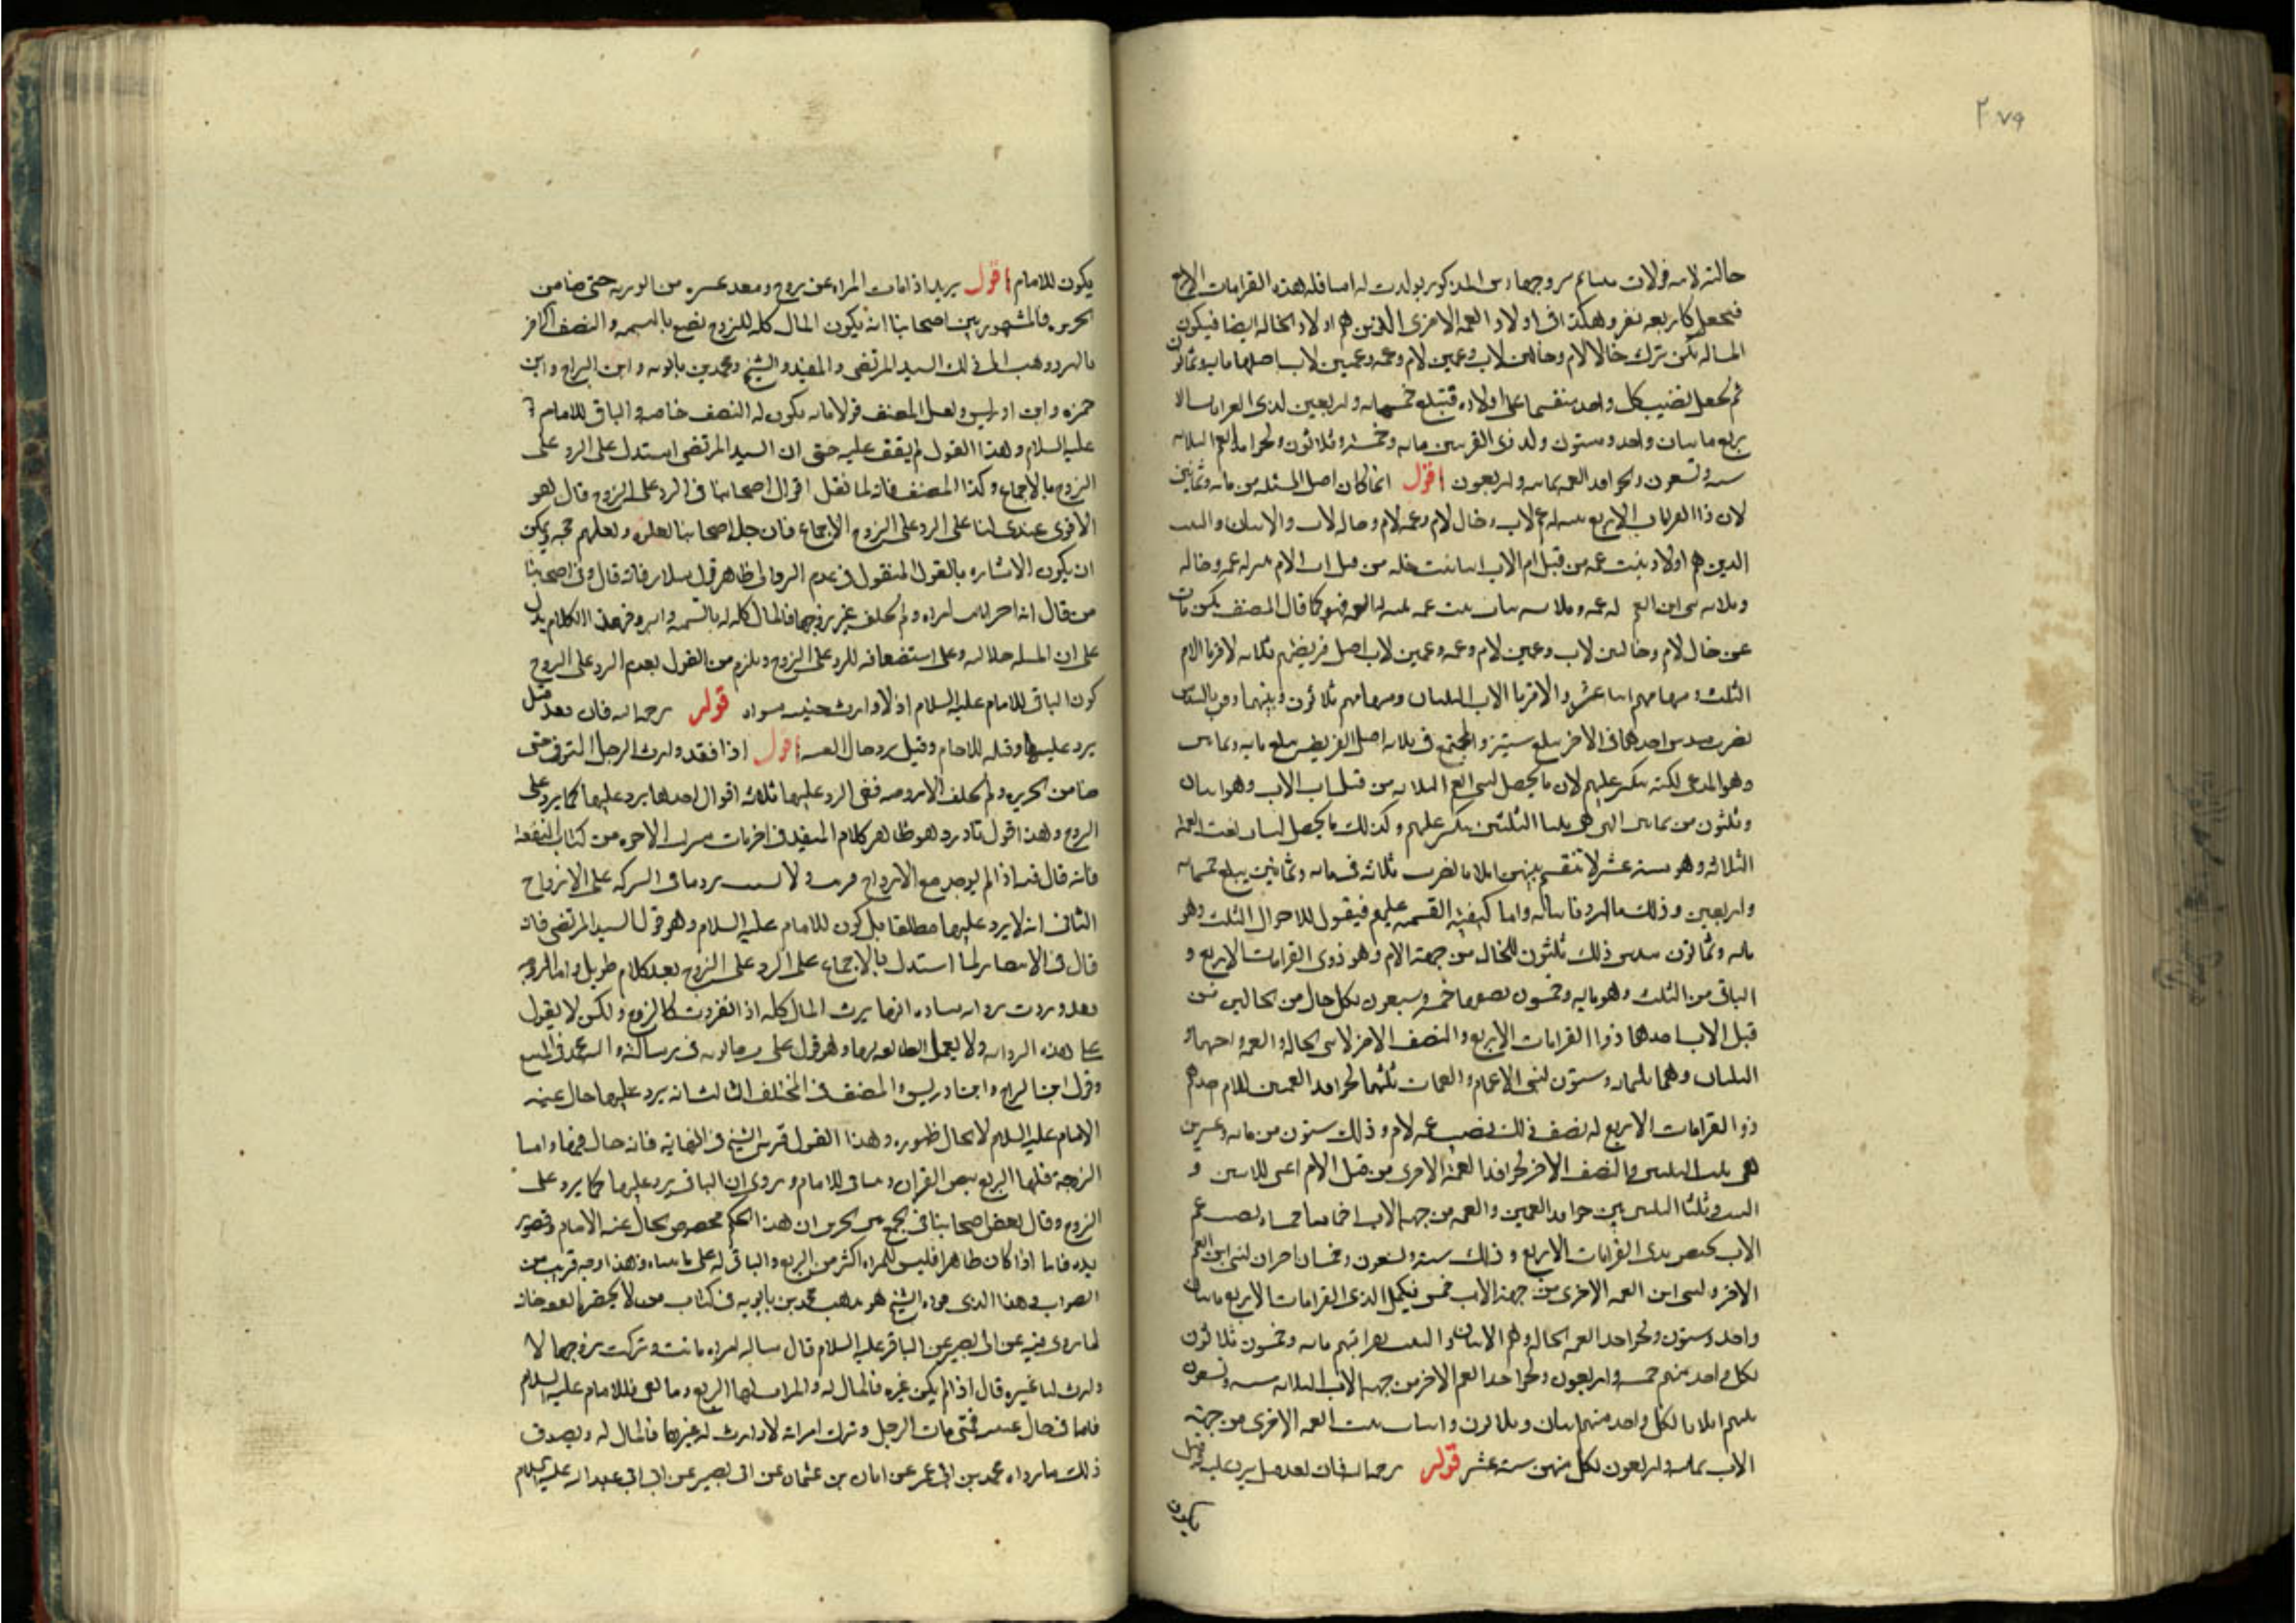 ٢٧٩
فيجعل كاربعه نفر وهكذا في اولاد العمه الاخرى الذين هم اولاد الخاله ايضا فيكون
المساله كمن ترك خالا لام وخالين لاب وعمين لام وعمه وعمين لاب اصلها مايه وثمانون
ثم تجعل نصيب كل واحد منقسما على اولاده فتبلغ خمسمايه واربعين لذى القرابات الا
ربع مايتان واحد وستون ولد ذى القربتين مايه وخمسه وثلاثون
اقول انما كان اصل المسئله من مايه وثمانين
لان ذا القرابات الاربع بمنزله عم لاب وخال لام وعم لام وخاله لاب والابنان والبنت
الذين هم اولاد بنت عمه من قبل ام الاب
فهو كما قال المصنف يكن مات
عن خال لام وخالين لاب وعمين لام وعمه وعمين لاب اصل فريضتهم ثلاثه لاقربا الام
الثلث وسهامهم اثنا عشر ولاقربا الاب الثلثان وسهامهم ثلاثون وبينهما وفق بالسدس
تضرب سدس احدهما في الاخر يبلغ ستين والمجتمع في ثلاثه اصل الفريضه يبلغ مايه وثمانين
وهو المدعى لكنه ينكسر عليهم لان ما يحصل لبنى العم الثلاثه من قبل اب الاب وهو اثنان
وثلثون من ثمانين التى هى ثلثا الثلثين ينكسر عليهم وكذلك ما يحصل لبنات بنت العمه
الثلاثه وهو سته عشر لا تنقسم بينهن اثلاثا تضرب ثلاثه في مايه وثمانين يبلغ خمسمايه
واربعين وذلك ما اردنا بيانه واما كيفيه القسمه عليهم فيقول للاخوال الثلث وهو
مايه وثمانون سدس ذلك ثلثون للخال من جهة الام وهو ذوى القرابات الاربع و
الباقى من الثلث وهو مايه وخمسون نصفها خمسه وسبعون لكل خال من الخالين من
قبل الاب احدهما ذو القرابات الاربع والنصف الاخر لابنى الخاله والعمه
الثلثان وهما ثلثمايه وستون لبنى الاعمام والعمات ثلثهما لاحفاد العمين للام احدهم
ذو القرابات الاربع له نصف ذلك نصيب عمه لام وذلك ستون من مايه وعشرين
هى ثلث الثلثين والنصف الاخر لاحفاد العمه الاخرى من قبل الام اعنى للابنين و
البنت وثلثا الثلثين بين احفاد العمين والعمه من جهه الاب اخماسا خمساه نصيب عم
الاب يختص بذى القرابات الاربع وذلك سته وتسعون وخمسان اخران لبنى ابن العم
الاخر ولبنى ابن العمه الاخرى من جهة الاب خمس فيكمل لذى القرابات الاربع مايتان
واحد وستون ولاحفاد العمه الخاله وهم الابنان والبنت بقرابتهم مايه وخمسون ثلاثون
لكل واحد منهم خمسه واربعون ولاحفاد العم الاخر من جهه الاب الثلاثه سته وتسعون
بينهم اثلاثا لكل واحد منهم اثنان وثلاثون ولبنات بنت العمه الاخرى من جهة
الاب ثمانيه واربعون لكل منهن سته عشر قوله رحمه الله فان بعد قيل يرد عليه وقيل
يكون
يكون للامام اقول يريد اذا ماتت المراه عن زوج وبعد غيره من الورثه حتى ضامن
الجريره فالمشهور بين اصحابنا انه يكون المال كله للزوج نصفه بالتسميه والنصف الاخر
بالرد وذهب الى ذلك السيد المرتضى والمفيد والشيخ ومحمد بن بابويه وابن البراج وابن
حمزه وابن ادريس ونقل المصنف قولا بانه يكون له النصف خاصه والباقى للامام
عليه السلام وهذا القول لم يقف عليه حتى ان السيد المرتضى استدل على الرد على
الزوج بالاجماع وكذا المصنف فانه لما نقل اقوال اصحابنا في الرد على الزوج قال وهو
الاقوى عندى لنا على الرد على الزوج الاجماع فان جل اصحابنا نقلوه ونقلهم حجه ويمكن
ان يكون الاشاره بالقول المنقول في عدم الرد الى ظاهر قول سلار فانه قال وفى اصحابنا
من قال اذا ماتت امراه ولم تخلف غير زوجها فالمال كله له بالتسميه والرد وفى هذا الكلام يدل
على ان المساله خلافيه وعلى استضعافه للرد على الزوج ويلزم من القول بعدم الرد على الزوج
كون الباقى للامام عليه السلام اذ لا وارث حينئذ سواه قوله رحمه الله فان بعد قيل
يرد عليها وقيل للامام وقيل يرد حال الغيبه اقول اذا فقد وارث الرجل المتوفى حتى
ضامن الجريره ولم يخلف الا زوجه ففى الرد عليها ثلاثه اقوال احدها يرد عليها كما يرد على
الزوج وهذا قول نادر وهو ظاهر كلام المفيد في اخر باب ميراث الاخوه من كتاب المقنعه
فانه قال فيه اذا لم يوجد مع الازواج قريب ولا نسيب رد باقى التركه على الازواج
الثانى انه لا يرد عليها مطلقا بل يكون للامام عليه السلام وهو قول السيد المرتضى فانه
قال في الانتصار لما استدل بالاجماع على الرد على الزوج بعد كلام طويل واما الزوجه
فقد وردت روايه شاذه انها يرث المال كله اذا انفردت كالزوج ولكن لا يقول
على هذه الروايه ولا يعمل الطائفه بها وهو قول على بن بابويه في رسالته
وقول ابن البراج وابن ادريس والمصنف في المختلف الثالث انه يرد عليها حال غيبه
الامام عليه السلام لا بحال ظهوره وهذا القول قربه الشيخ في النهايه فانه قال فيها واما
الزوجه فلها الربع بنص القران والباقى للامام وروى ان الباقى يرد عليها كما يرد على
الزوج وقال بعض اصحابنا في الجمع بين الخبرين ان هذا الحكم مخصوص بحال غيبه الامام وقصور
يده فاما اذا كان ظاهرا فليس للمراه اكثر من الربع والباقى له على ما بيناه وهذا وجه قريب من
الصواب وهذا الذى قواه الشيخ هو مذهب محمد بن بابويه في كتاب من لا يحضره الفقيه فانه
لما روى فيه عن ابى بصير عن الباقر عليه السلام قال ساله امراه ماتت وتركت زوجها لا
وارث لها غيره قال اذا لم يكن غيره فالمال له والمراه لها الربع وما بقى فللامام عليه السلام
فاما في حال غيبته فمتى مات الرجل وترك امراته لا وارث له غيرها فالمال لها وتصديق
ذلك ما رواه محمد بن ابى عمير عن ابان بن عثمان عن ابى بصير عن ابى عبد الله عليه السلام